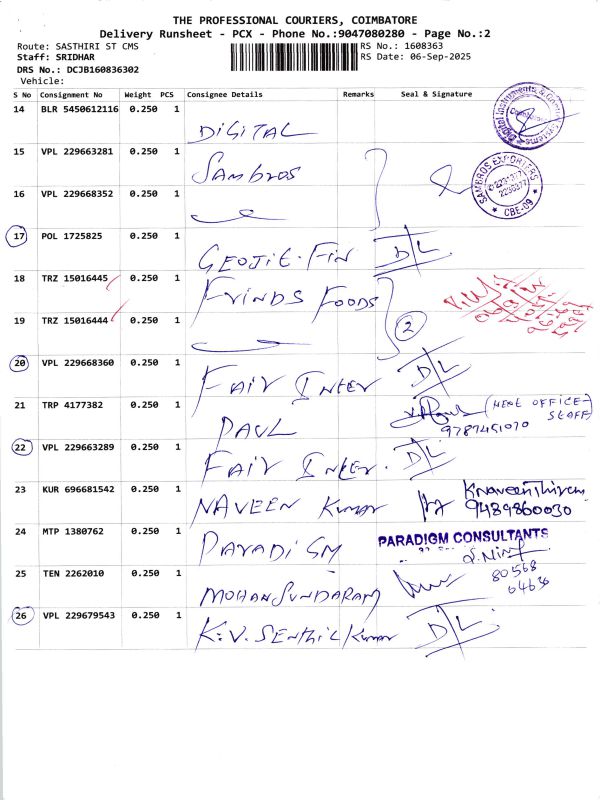 THE PROFESSIONAL COURIERS, COIMBATORE
Delivery Runsheet - PCX - Phone No.:9047080280 - Page No.:2
Route: SASTHIRI ST CMS RS No.: 1608363
Staff: SRIDHAR RS Date: 06-Sep-2025
DRS No.: DCJB160836302
Vehicle:
S No Consignment No Weight PCS Consignee Details Remarks Seal & Signature
14 BLR 5450612116 0.250 1 DIGITAL
15 VPL 229663281 0.250 1 SAMBROS
SAMBROS EXPORTERS
CBE-09
16 VPL 229668352 0.250 1
17 POL 1725825 0.250 1 GEOJIT. FIN D/L
18 TRZ 15016445 0.250 1 FRINDS FOODS
19 TRZ 15016444 0.250 1 2
20 VPL 229668360 0.250 1 FAIR INTER D/L
21 TRP 4177382 0.250 1 PAUL (HEAL OFFICE- STAFF)
9787451070
22 VPL 229663289 0.250 1 FAIR INTER. D/L
23 KUR 696681542 0.250 1 NAVEEN KUMAR
9489860030
24 MTP 1380762 0.250 1 PARADISM PARADIGM CONSULTANTS
25 TEN 2262010 0.250 1 MOHAN SUNDARAM 80568
04636
26 VPL 229679543 0.250 1 K.V. SENTHIL KUMAR D/L